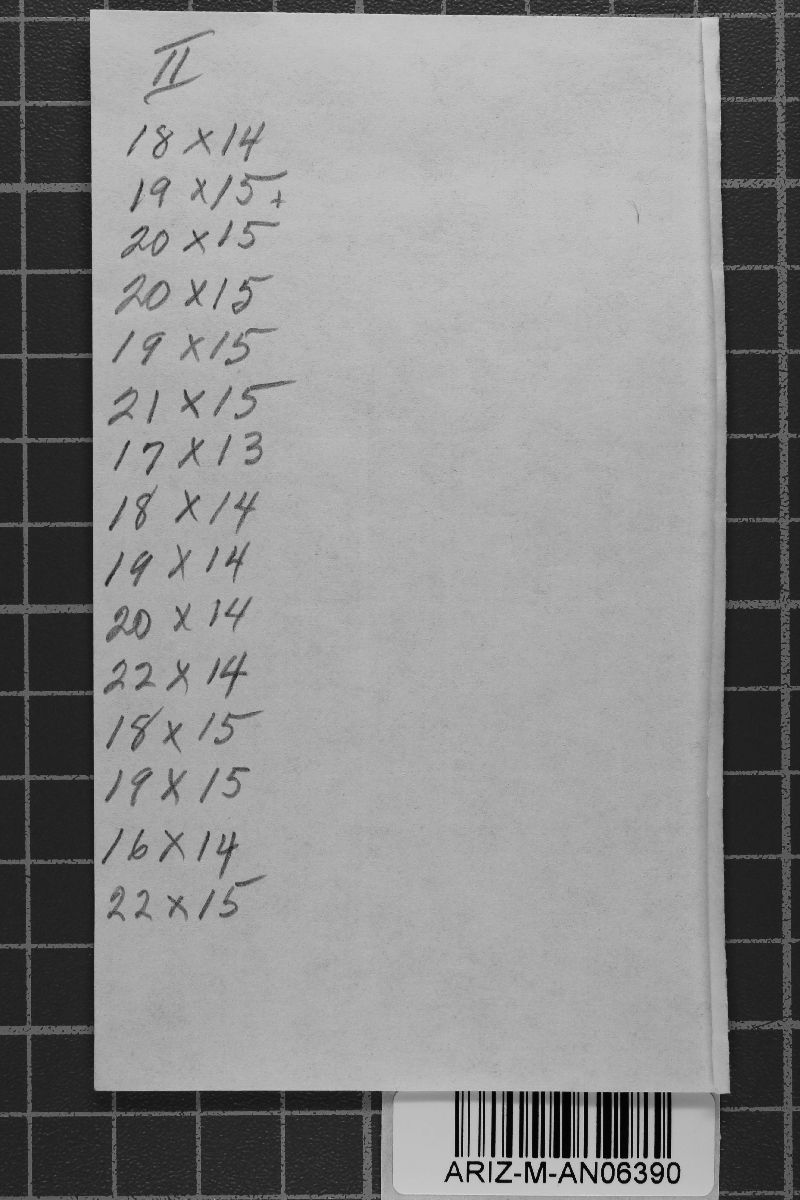 II
18 x 14
19 x 15+
20 x 15
20 x 15
19 x 15
21 x 15
17 x 13
18 x 14
19 x 14
20 x 14
22 x 14
18 x 15
19 x 15
16 x 14
22 x 15
ARIZ-M-AN06390